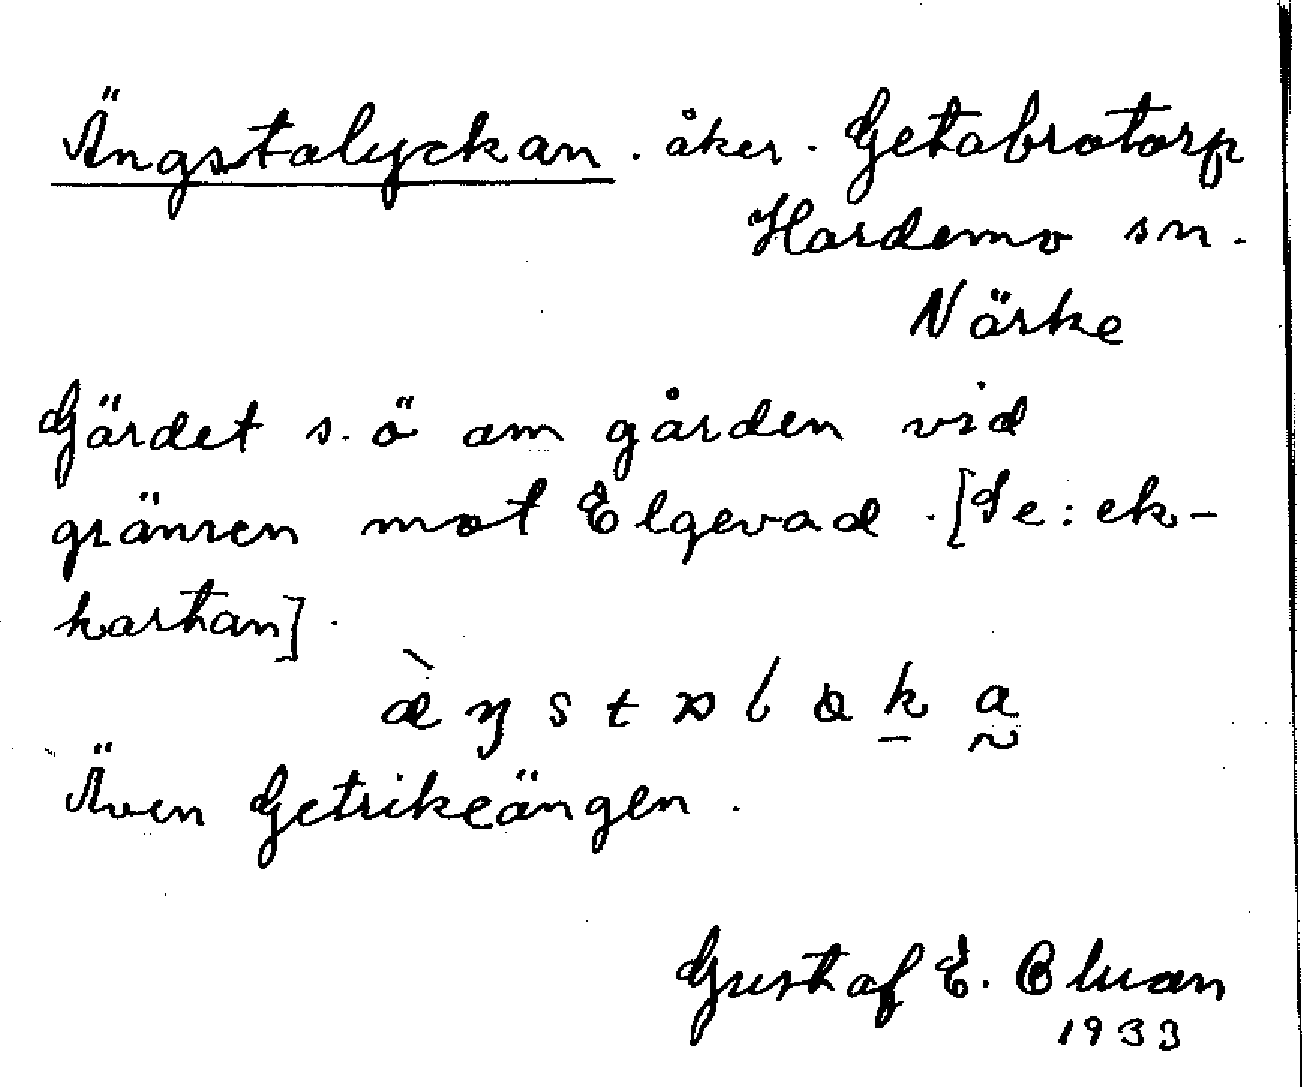 Ängstalyckan. åker. Getabrotorp
Hardemo sn.
Närke
Gärdet s.ö om gården vid
gränsen mot Elgevad. [Se: ek-
kartan].
Även Getrikeängen.
Gustaf E. Bluan
1933